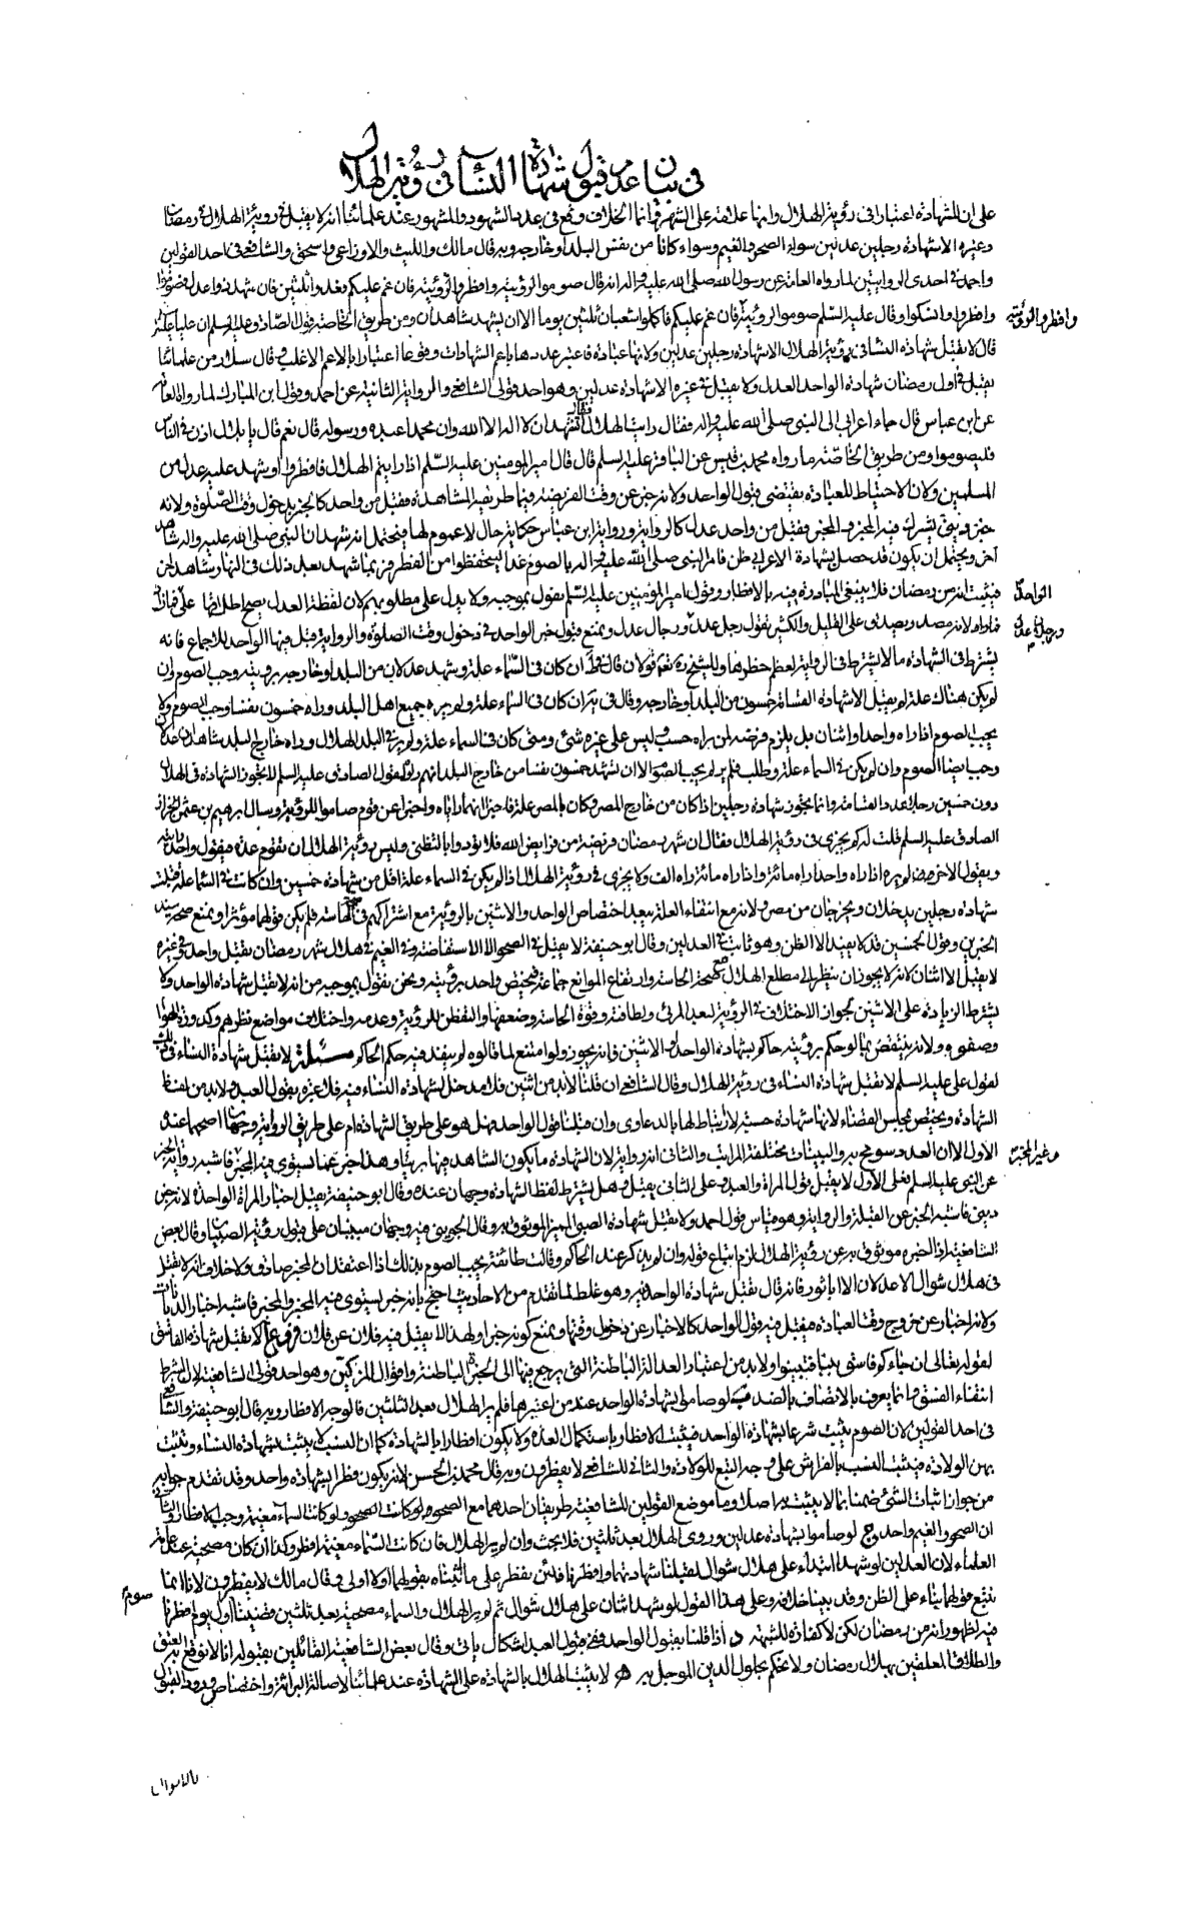 في بيان عدم قبول شهادة النساء في رؤية الهلال
على ان للشهادة اعتبارا في رؤية الهلال وانها علامة على الشهر وانما الخلاف وقع في عدد الشهود والمشهور عند علمائنا انه لا يقبل في رؤية الهلال في رمضان
وغيره الا شهادة رجلين عدلين سواء الصحو والغيم وسواء كانا من نفس البلد او خارجه وبه قال مالك والليث والاوزاعي واسحق والشافعي في احد القولين
واحمد في احدى الروايتين لما رواه العامة عن رسول الله صلى الله عليه واله انه قال صوموا لرؤيته وافطروا لرؤيته فان غم عليكم فعدوا ثلثين فان شهد ذوا عدل فصوموا
وافطروا وانسكوا وقال عليه السلم صوموا لرؤيته فان غم عليكم فاكملوا شعبان ثلثين يوما الا ان يشهد شاهدان ومن طريق الخاصة قول الصادق عليه السلم ان عليا عليه السلم
وافطروا لرؤيته
قال لا تقبل شهادة النساء في رؤية الهلال الا شهادة رجلين عدلين ولانها عبادة فاعتبر عددها باعم الشهادات وقوعا اعتبارا بالاعم الاغلب وقال سلار من علمائنا
يقبل في اول رمضان شهادة الواحد العدل ولا يقبل في غيره الا شهادة عدلين وهو احد قولي الشافعي والرواية الثانية عن احمد وقول ابن المبارك لما رواه العامة
عن ابن عباس قال جاء اعرابي الى النبي صلى الله عليه واله فقال رايت الهلال فقال اتشهد ان لا اله الا الله وان محمدا عبده ورسوله قال نعم قال يا بلال اذن في الناس
فليصوموا ومن طريق الخاصة ما رواه محمد بن قيس عن الباقر عليه السلم قال قال امير المؤمنين عليه السلم اذا رايتم الهلال فافطروا او شهد عليه عدل من
المسلمين ولان الاحتياط للعبادة يقتضي قبول الواحد ولانه خبر عن وقت الفريضة فيما طريقه المشاهدة فقبل من واحد كالخبر بدخول وقت الصلوة ولانه
خبر ديني يشترك فيه المخبر والمخبر فقبل من واحد عدل كالرواية ورواية ابن عباس حكاية حال لا عموم لها فيحتمل انه شهد ان النبي صلى الله عليه واله شاهد
اخر ويحتمل ان يكون قد حصل بشهادة الاعرابي ظن فامر النبي صلى الله عليه واله بالصوم غدا ليتحفظوا من الفطر فربما شهد بعد ذلك في النهار شاهد اخر
فيثبت انه من رمضان فلا ينبغي المبادرة فيه بالافطار وقول امير المؤمنين عليه السلم نقول بموجبه ولا يدل على مطلوبهم لان لفظة العدل يصح اطلاقها على
الواحد
فما زاد لانه مصدر يصدق على القليل والكثير نقول رجل عدل ورجال عدل ويمنع قبول خبر الواحد في دخول وقت الصلوة والرواية قبل فيها الواحد للاجماع فانه
ورجلان عدل
يشترط في الشهادة ما لا يشترط في الرواية لعظم خطرها وللشيخ ره قولان قال ان كان في السماء علة وشهد عدلان من البلد او خارجه برؤيته وجب الصوم وان
لم يكن هناك علة لم يقبل الا شهادة القسامة خمسون من البلد او خارجه وقال في ية ان كان في السماء علة ولم يره جميع اهل البلد وراه خمسون نفسا وجب الصوم ولا
يجب الصوم اذا راه واحد او اثنان بل يلزم فرضه لمن يراه حسب وليس على غيره شئ ومتى كان في السماء علة ولم ير في البلد الهلال وراه خارج البلد شاهدان عدلان
وجب ايضا الصوم وان لم يكن في السماء علة وطلب فلم ير لم يجب الصوم الا ان يشهد خمسون نفسا من خارج البلد انهم راوه لقول الصادق عليه السلم لا تجوز الشهادة في الهلال
دون خمسين رجلا عدد القسامة وانما يجوز شهادة رجلين اذا كان من خارج المصر وكان بالمصر علة فاخبرا انهما راياه واخبرا عن قوم صاموا للرؤية وسال ابرهيم بن عثمن الخزاز
الصادق عليه السلم قلت له كم يجزي في رؤية الهلال فقال ان شهر رمضان فريضة من فرايض الله فلا تؤدوا بالتظني وليس رؤية الهلال ان يقوم عدة فيقول واحد رايته
ويقول الاخرون لم نره اذا راه واحد راه مائة واذا راه مائة راه الف ولا يجزي في رؤية الهلال اذا لم يكن في السماء علة اقل من شهادة خمسين وان كانت في السماء علة قبلت
شهادة رجلين يدخلان ويخرجان من مصر ولانه مع انتفاء العلة يبعد اختصاص الواحد والاثنين بالرؤية مع اشتراكهم في صحة الحاسة فلم يكن قولهما مؤثرا ويمنع صحة سند
الخبرين وقول الخمسين قد لا يفيد الا الظن وهو ثابت في العدلين وقال ابو حنيفة لا يقبل في الصحو الا الاستفاضة وفي الغيم في هلال شهر رمضان يقبل واحد وفي غيره
لا يقبل الا اثنان لانه لا يجوز ان ينظر الى مطلع الهلال مع صحة الحاسة وارتفاع الموانع جماعة فيختص واحد برؤيته ونحن نقول بموجبه من انه لا تقبل شهادة الواحد ولا
يشترط الزيادة على الاثنين لجواز الاختلاف في الرؤية لبعد المرئى ولطافته وقوة الحاسة وضعفها والتفطن للرؤية وعدمه واختلاف مواضع نظرهم وكدورة الهواء
وصفوه ولانه ينتقض بما لو حكم برؤيته حاكم بشهادة الواحد او الاثنين فانه يجوز ولو امتنع لما قالوه لم ينفذ فيه حكم الحاكم مسئلة لا تقبل شهادة النساء في ذلك
لقول علي عليه السلم لا تقبل شهادة النساء في رؤية الهلال وقال الشافعي ان قلنا لا بد من اثنين فلا مدخل لشهادة النساء فيه فلا عبرة بقول العبد ولا بد من لفظ
الشهادة ويختص بمجلس القضاء لانها شهادة حسبة لا ارتباط لها بالدعاوى وان قبلنا قول الواحد فهل هو على طريق الشهادة ام على طريق الرواية وجهان اصحهما عنده
الاول الا ان العدد سومح به والبينات مختلفة المراتب والثاني انه رواية لان الشهادة ما يكون الشاهد فيها بريا وهذا خبر عما يستوي فيه المخبر فاشبه رواية الخبر
وغير المخبر
عن النبي عليه السلم فعلى الاول لا يقبل قول المراة والعبد وعلى الثاني يقبل وهل يشترط لفظ الشهادة وجهان عنده وقال ابو حنيفة يقبل اخبار المراة الواحدة لانه خبر
ديني فاشبه الخبر عن القبلة والرواية وهو قياس قول احمد ولا يقبل شهادة الصبي المميز الموثوق به وقال الجويني فيه وجهان مبنيان على قبول رواية الصبيان وقال بعض
الشافعية اذا اخبره موثوق به عن رؤية الهلال لزم اتباع قوله وان لم يذكر عند الحاكم وقالت طائفة يجب الصوم بذلك اذا اعتقد ان المخبر صادق ولا خلاف انه لا يقبل
في هلال شوال الا عدلان الا ابا ثور فانه قال يقبل شهادة الواحد فيه وهو غلط لما تقدم من الاحاديث احتج بانه خبر يستوي فيه المخبر والمخبر فاشبه اخبار الديانات
ولانه اخبار عن خروج وقت العبادة فيقبل فيه قول الواحد كالاخبار عن دخول وقتها ويمنع كونه خبرا ولهذا لا يقبل فيه فلان عن فلان فروع ا لا يقبل شهادة الفاسق
لقوله تعالى ان جاءكم فاسق بنبا فتبينوا ولا بد من اعتبار العدالة الباطنة التي يرجع فيها الى الخبرة الباطنة واقوال المزكين وهو احد قولي الشافعية لان الشرط
انتفاء الفسق وانما يعرف بالاتصاف بالضد ب لو صاموا بشهادة الواحد عند من اعتبرها فلم ير الهلال بعد الثلثين فالوجه الافطار وبه قال ابو حنيفة والشافعي
في احد القولين لان الصوم يثبت شرعا بشهادة الواحد فيثبت الافطار باستكمال العدة ولا يكون افطارا بالشهادة كما ان النسب لا يثبت بشهادة النساء وتثبت
بهن الولادة فيثبت النسب بالفراش على وجه التبع للولادة والثاني للشافعي لا يفطرون وبه قال محمد بن الحسن لانه يكون فطرا بشهادة واحد وقد تقدم جوابه
من جواز اثبات الشئ ضمنا بما لا يثبت به اصلا وما موضع القولين للشافعية طريقان احدهما مع الصحو ولو كانت السماء مغيمة وجب الافطار والثاني
ان الصحو والغيم واحد ج لو صاموا بشهادة عدلين وروى الهلال بعد ثلثين فلا بحث وان لم ير الهلال فان كانت السماء مغيمة افطروا وكذا ان كان مصحية عند عامة
العلماء لان العدلين لو شهدا ابتداء على هلال شوال لقبلنا شهادتهما وافطرنا فلئن نفطر على ما اثبتناه بقولهما اولا اولى وقال مالك لا يفطرون لانا انما
نتبع قولهما بناء على الظن وقد بينا خلافه وعلى هذا القول لو شهد اثنان على هلال شوال ثم لم ير الهلال والسماء مصحية بعد ثلثين قضينا اول يوم افطرنا
صوم
فيه لظهور انه من رمضان لكن لا كفارة للشبهة د اذا قلنا بقبول الواحد ففي قبول العبد اشكال ياتي وقال بعض الشافعية القائلين بقبوله انا لا نوقع به العتق
والطلاق المعلقين بهلال رمضان ولا نحكم بحلول الدين المؤجل به ه لا يثبت الهلال بالشهادة على الشهادة عند علمائنا لاصالة البراءة واختصاص ورود القبول
بالاموال